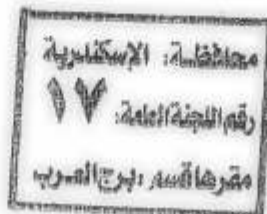 محافظة: الإسكندرية
رقم اللجنة العامة: ١٧
مقرها قسم برج العرب